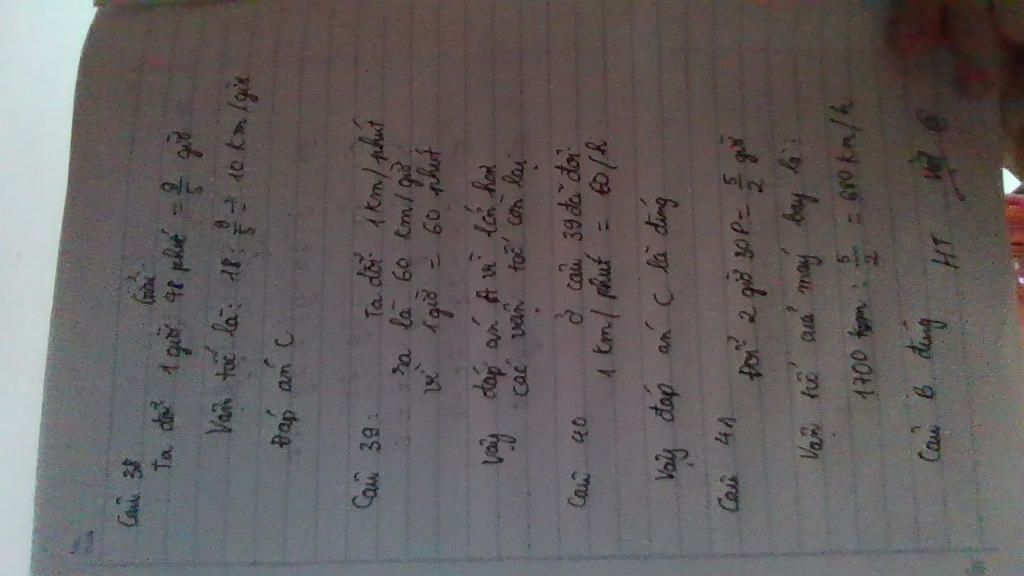 Câu 38
Giải
Ta đổi 1 giờ 48 phút = 9/5 giờ
Vận tốc là: 18 : 9/5 = 10 km/giờ
Đáp án C
Câu 39: Ta đổi 1 km/phút
ra là 60 km/giờ
vì 1 giờ = 60 phút
Vậy đáp án A vì lớn hơn
các vận tốc còn lại.
Câu 40 ở câu 39 đã đổi
1 km/phút = 60/h
Vậy đáp án C là đúng
Câu 41
Đổi 2 giờ 30P = 5/2 giờ
Vận tốc của máy bay là:
1700 : 5/2 = 680 km/h
Câu B đúng HT